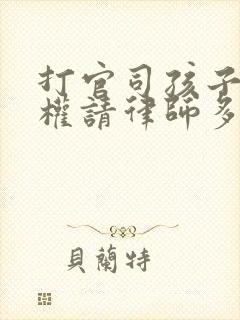 打官司孩子
權請律師多
貝蘭特